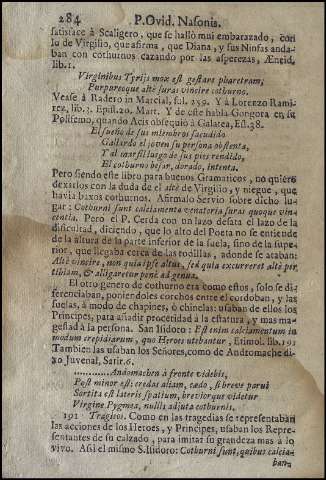 284 P. Ovid. Nasonis.
satisface à Scaligero, que se hallò mui embarazado, con
lo de Virgilio, que afirma, que Diana, y sus Ninfas anda-
ban con cothurnos cazando por las asperezas, Æneid.
lib. 1.
Virginibus Tyrijs mos est gestare pharetram;
Purpureoque altè suras vincire cothurno.
Vease à Radero in Marcial, ful. 259. Y à Lorenzo Rami-
rez, lib. 3. Epist. 20. Mart. Y de este habla Gongora en su
Polifemo, quando Acis obsequiò à Galatea, Est. 38.
El sueño de sus miembros sacudido
Gallardo el joven su persona obstenta,
Y al marfil luego de sus pies rendido,
El cothurno besar, dorado, intenta.
Pero siendo este libro para buenos Gramaticos, no quiero
dexarlos con la duda de el altè de Virgilio, y niegue, que
havia baxos cothurnos. Afirmalo Servio sobre dicho lu-
gar: Cothurni sunt calciamenta venatoria suras quoque vin-
centia. Pero el P. Cerda con un lazo desata el lazo de la
dificultad, diciendo, que lo alto del Poeta no se entiende
de la altura de la parte inferior de la suela, sino de la supe-
rior, que llegaba cerca de las rodillas, adonde se ataban:
Altè vincire, non quia ipse altus, sed quia excurreret altè per
tibiam, & alligaretur ponè ad genua.
El otro genero de cothurno era como estos, solo se di-
ferenciaban, poniendoles corchos entre el cordoban, y las
suelas, à modo de chapines, ò chinelas: usaban de ellos los
Principes, para añadir proceridad à la estatura, y mas ma-
gestad à la persona. San Isidoro: Est enim calciamentum in
modum crepidiarum, quo Heroes utebantur, Etimol. lib. 19.
Tambien las usaban los Señores, como de Andromache di-
xo Juvenal, Satir. 6.
............Andomachen à fronte videbis,
Post minor est: credas aliam, cædo, si breve parvi
Sortita est lateris spatium, breviorque videtur
Virgine Pygmea, nullis adjuta cothurnis.
191 Tragicos. Como en las tragedias se representaban
las acciones de los Heroes, y Principes, usaban los Repre-
sentantes de su calzado, para imitar su grandeza mas à lo
vivo. Assi el mismo S. Isidoro: Cothurni sunt, quibus calcia-
ban-